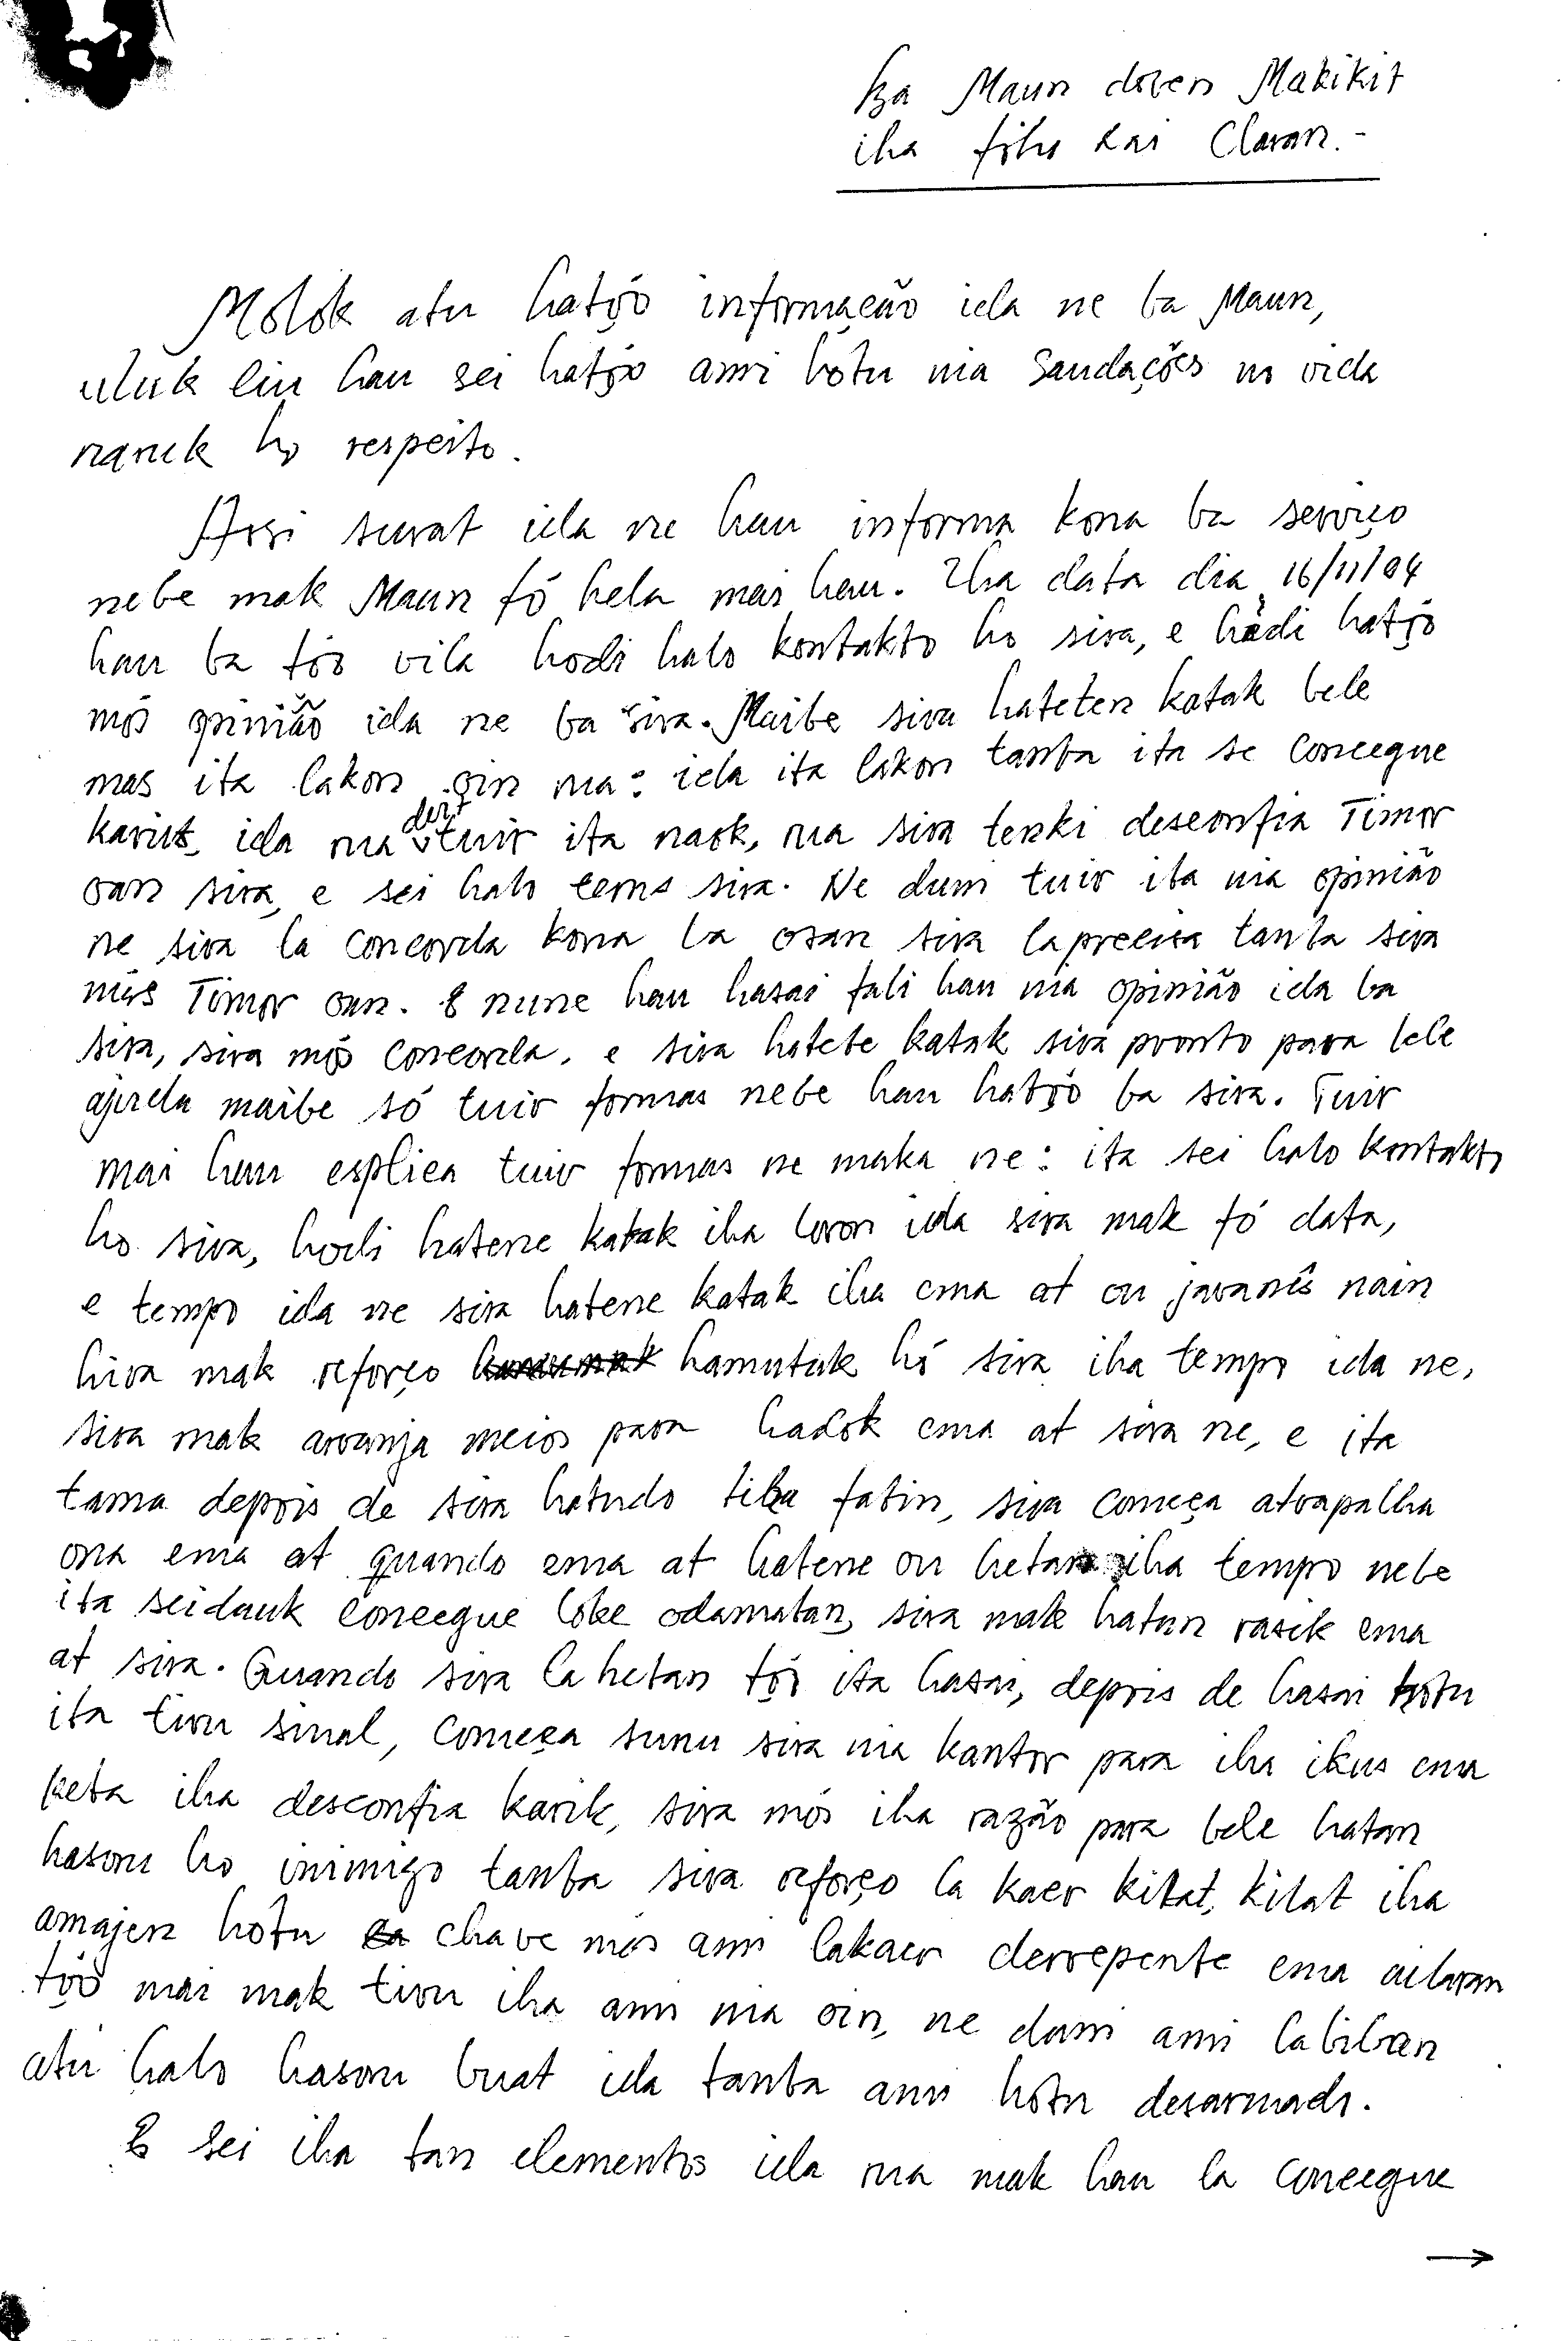 Ba Maun doben Makikit
iha fohu Rai Claran.-
Molok atu hatóo informação ida ne ba Maun,
uluk liu hau sei hatóo ami hótu nia Saudações no vida
naruk ho respeito.
Husi surat ida ne hau informa kona ba serviço
nebe mak Maun fó hela mai hau. Iha data dia 16/11/94
hau ba tóo vila hodi halo kontakto ho sira, e hódi hatóo
mós opinião ida ne ba sira. Maibe sira hateten katak bele
mas ita lakon oin rua: ida ita lakon tanba ita se Concegue
karik, ida rua der tuir ita naok, rua sira tenki desconfia Timor
oan sira, e sei halo terus sira. Ne duni tuir ita nia opinião
ne sira la Concorda kona ba osan sira la precisa tanba sira
mós Timor oan. E nune hau hasai fali hau nia opinião ida ba
sira, sira mós Concorda, e sira hatete katak sira pronto para bele
ajuda maibe só tuir formas nebe hau hatóo ba sira. Tuir
mai hau esplica tuir formas ne maka ne: ita sei halo kontakto
ho sira, hodi hatene katak iha loron ida sira mak fó data,
e tempo ida ne sira hatene katak iha ema at ou javanês nain
hira mak reforço hamutuk hó sira iha tempo ida ne,
sira mak arranja meios para hadok ema at sira ne, e ita
tama depois de sira hatudo tiha fatin, sira começa atrapalha
ona ema at quando ema at hatene ou hetan iha tempo nebe
ita seidauk concegue loke odamatan, sira mak hatan rasik ema
at sira. Quando sira la hetan tóo ita hasai, depois de hasai hotu
ita tiru sinal, começa sunu sira nia kantor para iha ikus ema
keta iha desconfia karik, sira mós iha razão para bele hatan
hasoru ho inimigo tanba sira reforço la kaer kilat, kilat iha
amajen hotu chave mós ami lakaer derrepente ema
tóo mai mak tiru iha ami nia oin, ne duni ami labiban
atu halo hasoru buat ida tanba ami hotu desarmado.
E sei iha tan elementos ida rua mak hau la Concegue
→